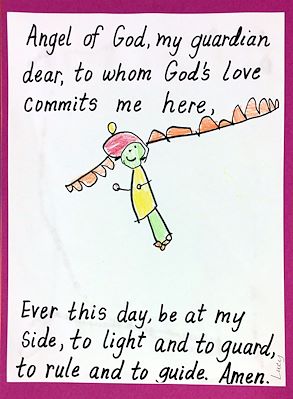 Angel of God, my guardian
dear, to whom God's love
commits me here,
Ever this day, be at my
side, to light and to guard,
to rule and to guide. Amen.
Lucy